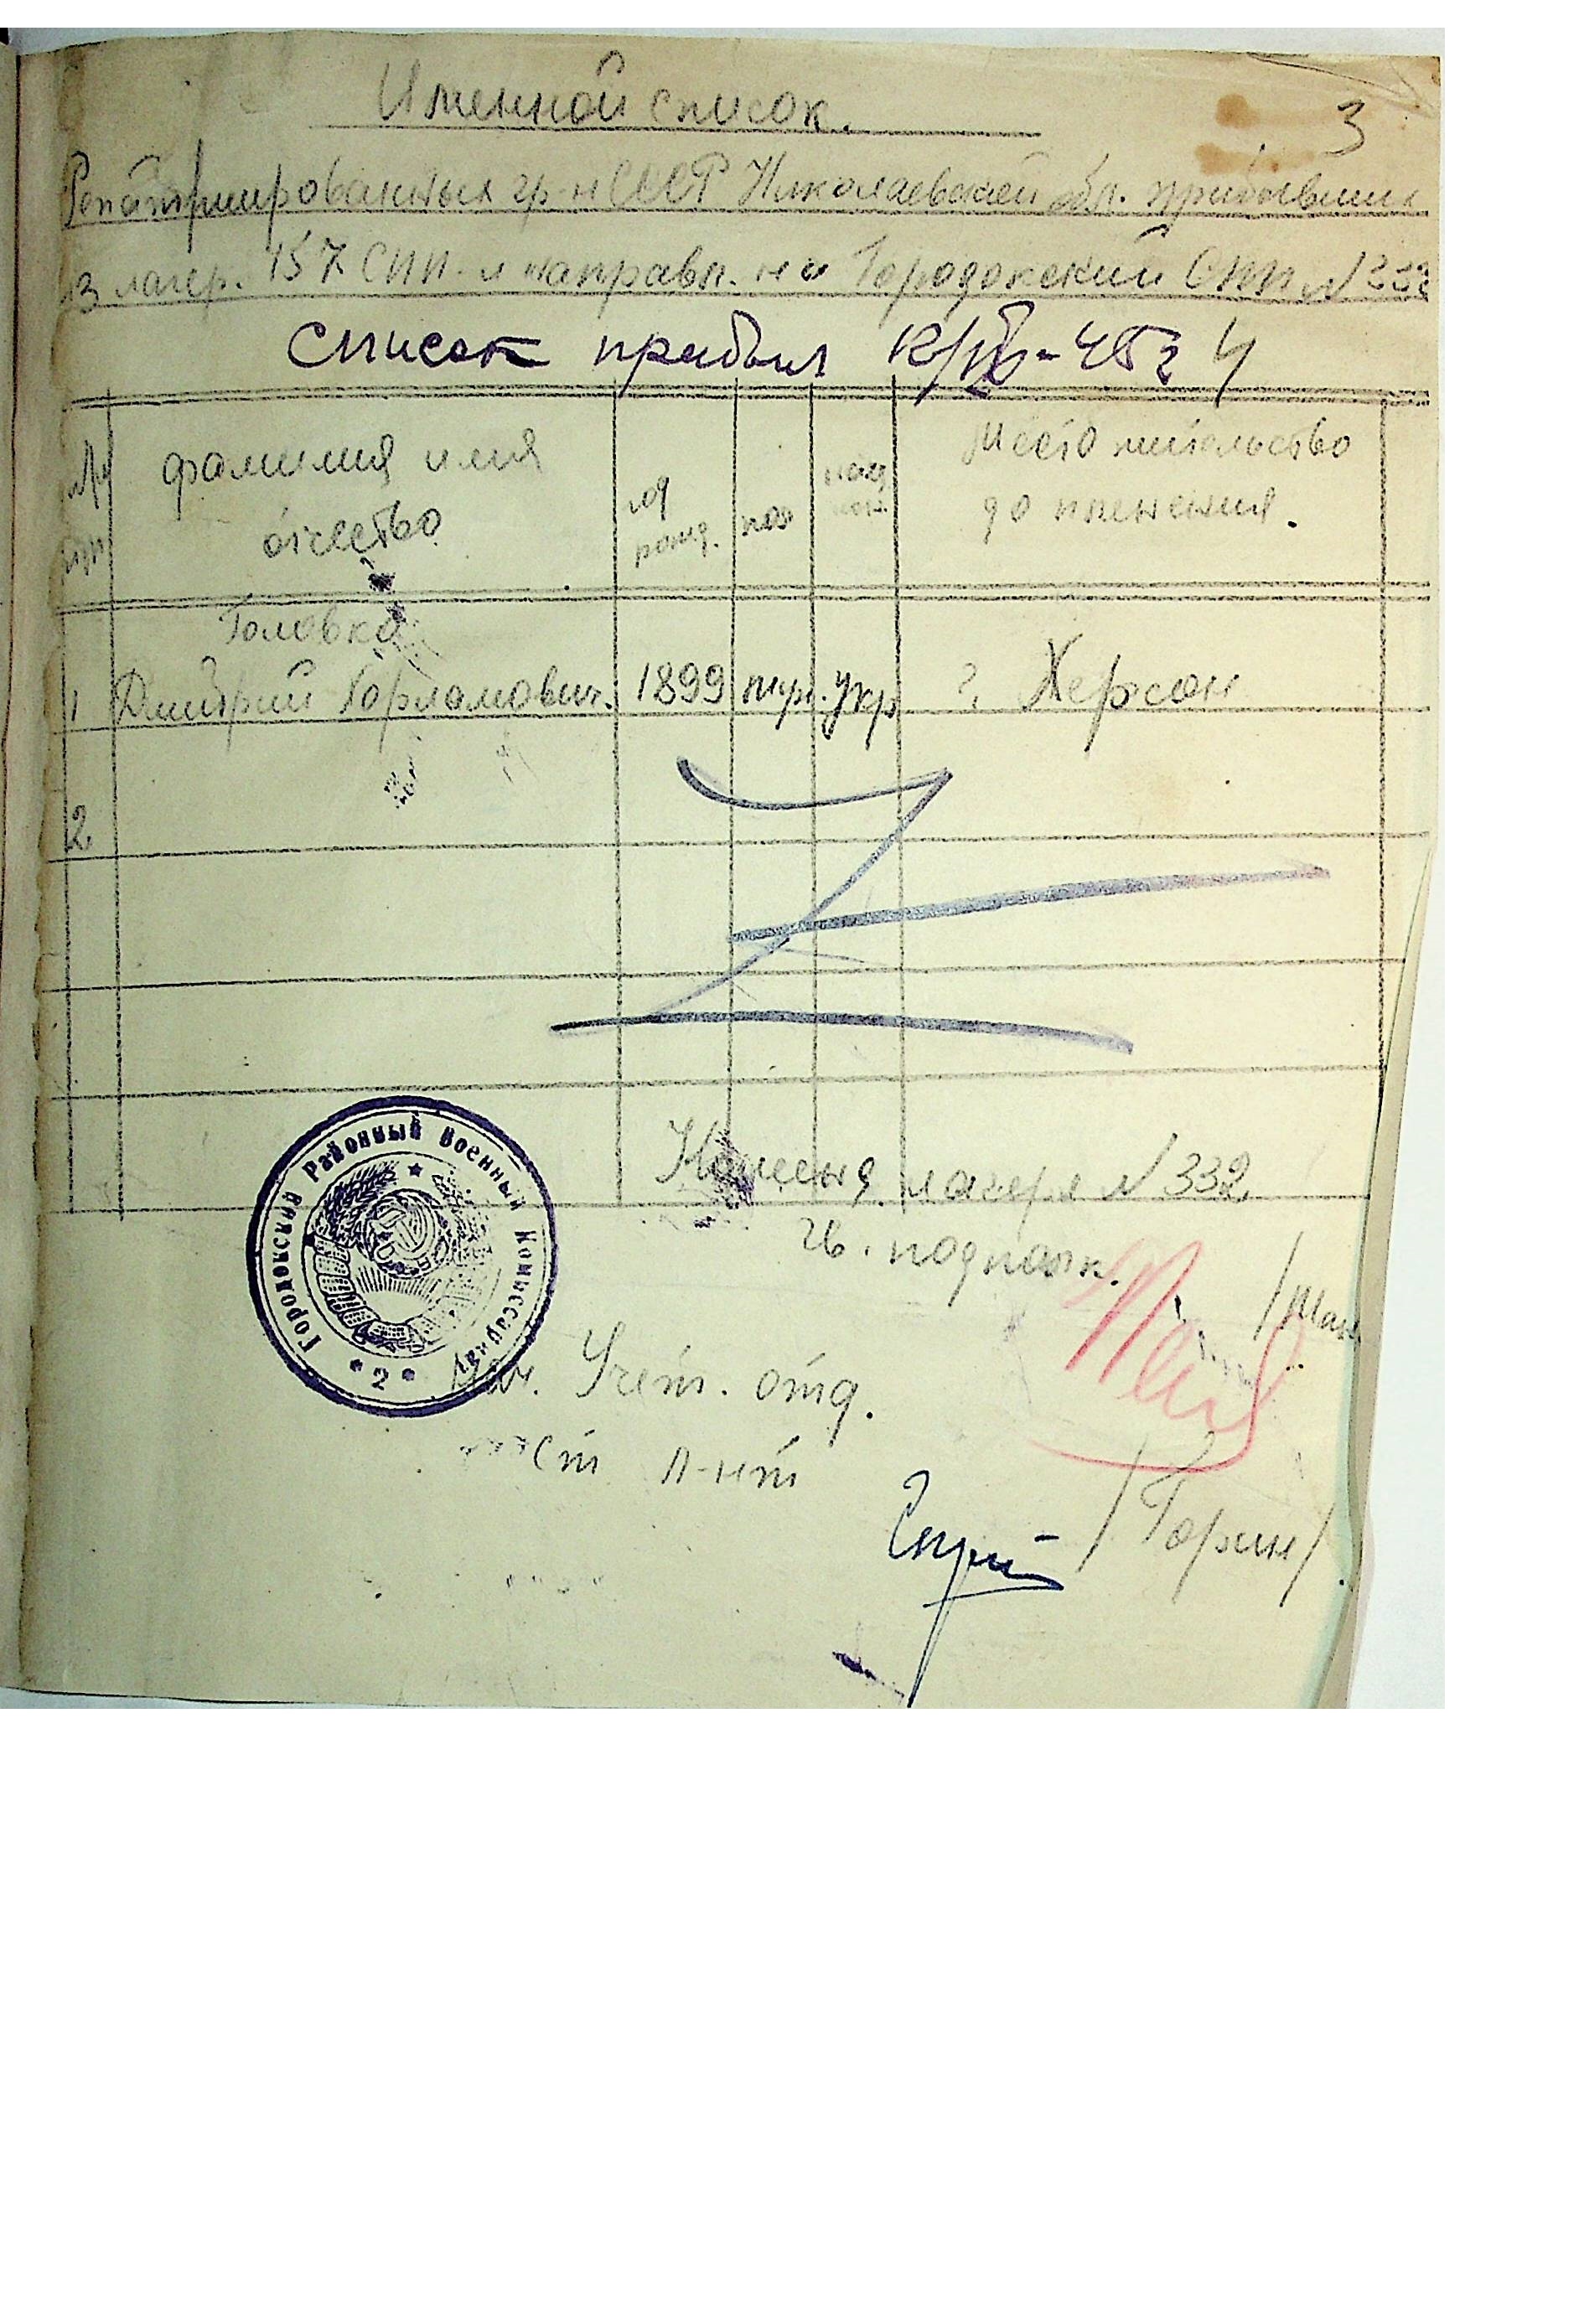 Именной список.
3
Репатриированных гр-н СССР Николаевской обл. прибывших
из лагер. 157 СПП и направл. на Городокский СПП N 332
Список прибыл
№
фамилия имя
отчество
год
рожд.
пол
место жительство
до пленения.
Головко
1 Дмитрий Горламович. 1899 муж. укр г. Херсон
2
Городокский Районный Военный Комиссариат
* 2 *
Команд. лагеря N 332
гв. подполк.
Нач. Учет. отд.
ст л-нт
/Горин/